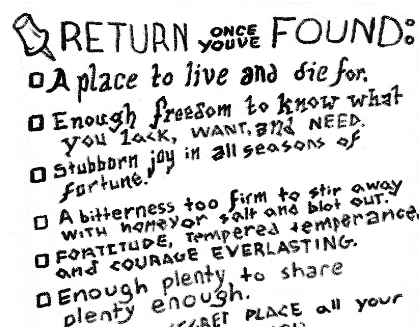 RETURN ONCE YOU'VE FOUND:
A place to live and die for.
Enough freedom to know what
you lack, WANT, and NEED.
Stubborn joy in all seasons of
fortune.
A bitterness too firm to stir away
WITH honey or salt and blot out.
FORTITUDE, tempered temperance,
and COURAGE EVERLASTING.
Enough plenty to share
plenty enough.
PLACE all your